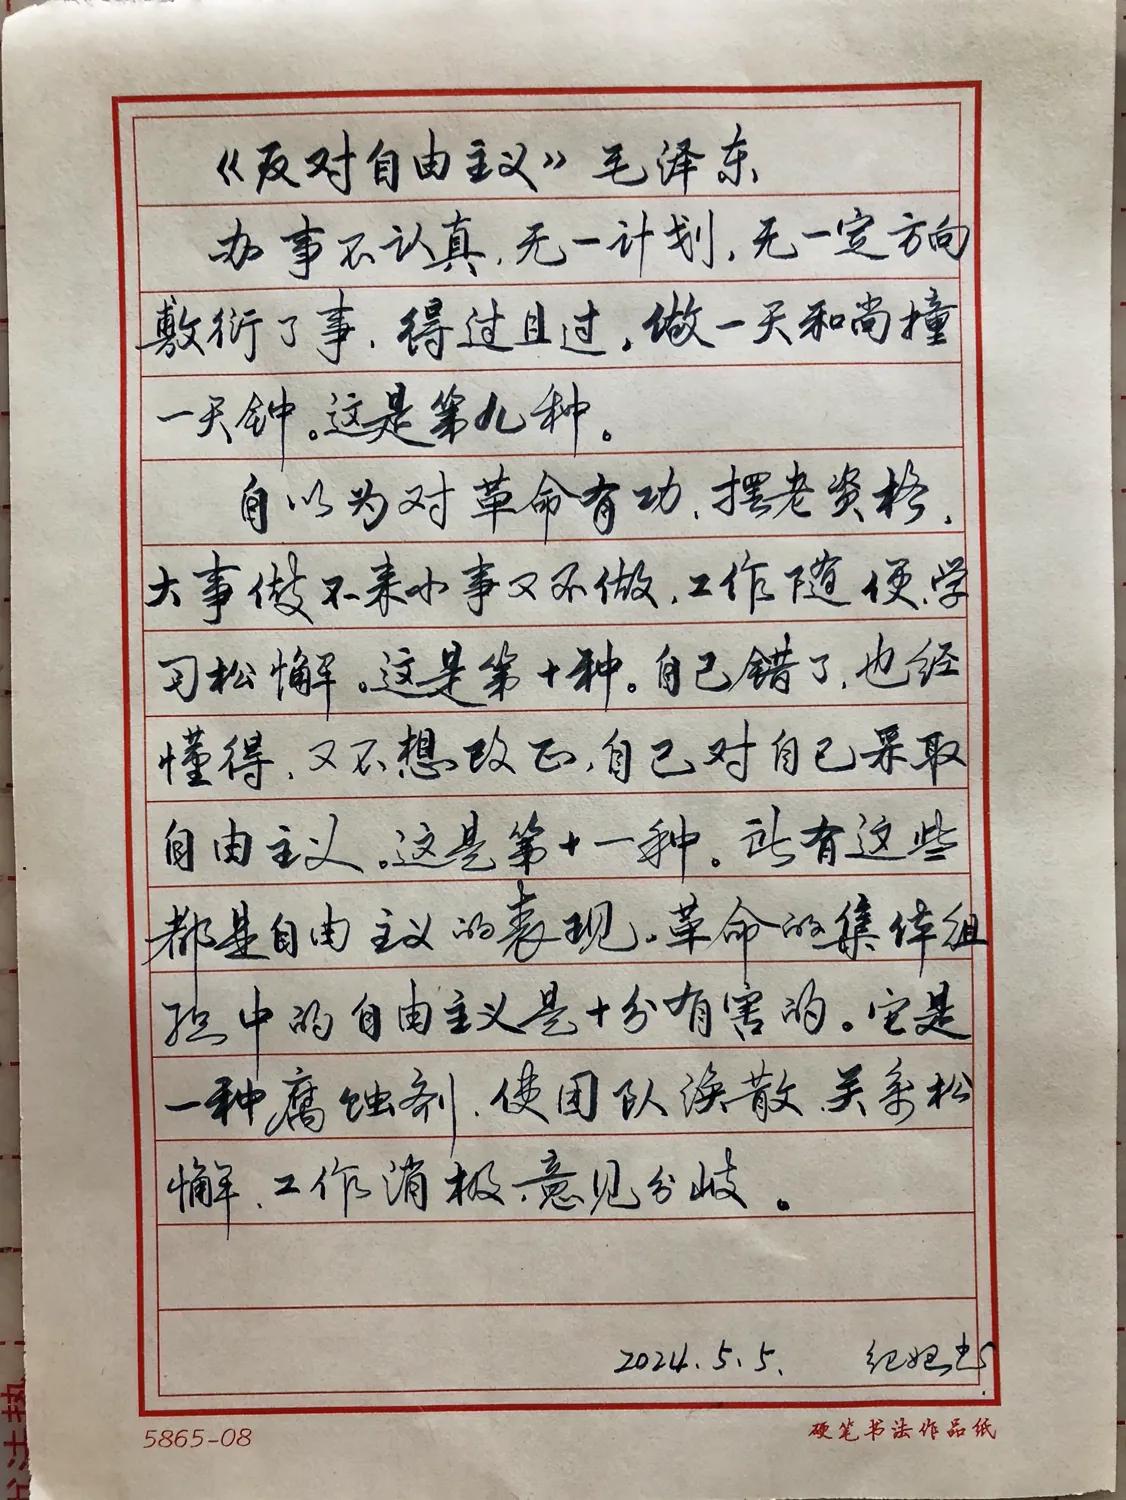 《反对自由主义》毛泽东
办事不认真，无一计划，无一定方向
敷衍了事，得过且过，做一天和尚撞
一天钟。这是第九种。
自以为对革命有功，摆老资格，
大事做不来小事又不做，工作随便，学
习松懈。这是第十种。自己错了，也经
懂得，又不想改正，自己对自己采取
自由主义。这是第十一种。所有这些
都是自由主义的表现。革命的集体组
织中的自由主义是十分有害的。它是
一种腐蚀剂，使团队涣散，关系松
懈，工作消极，意见分歧。
2024.5.5.
5865-08
硬笔书法作品纸